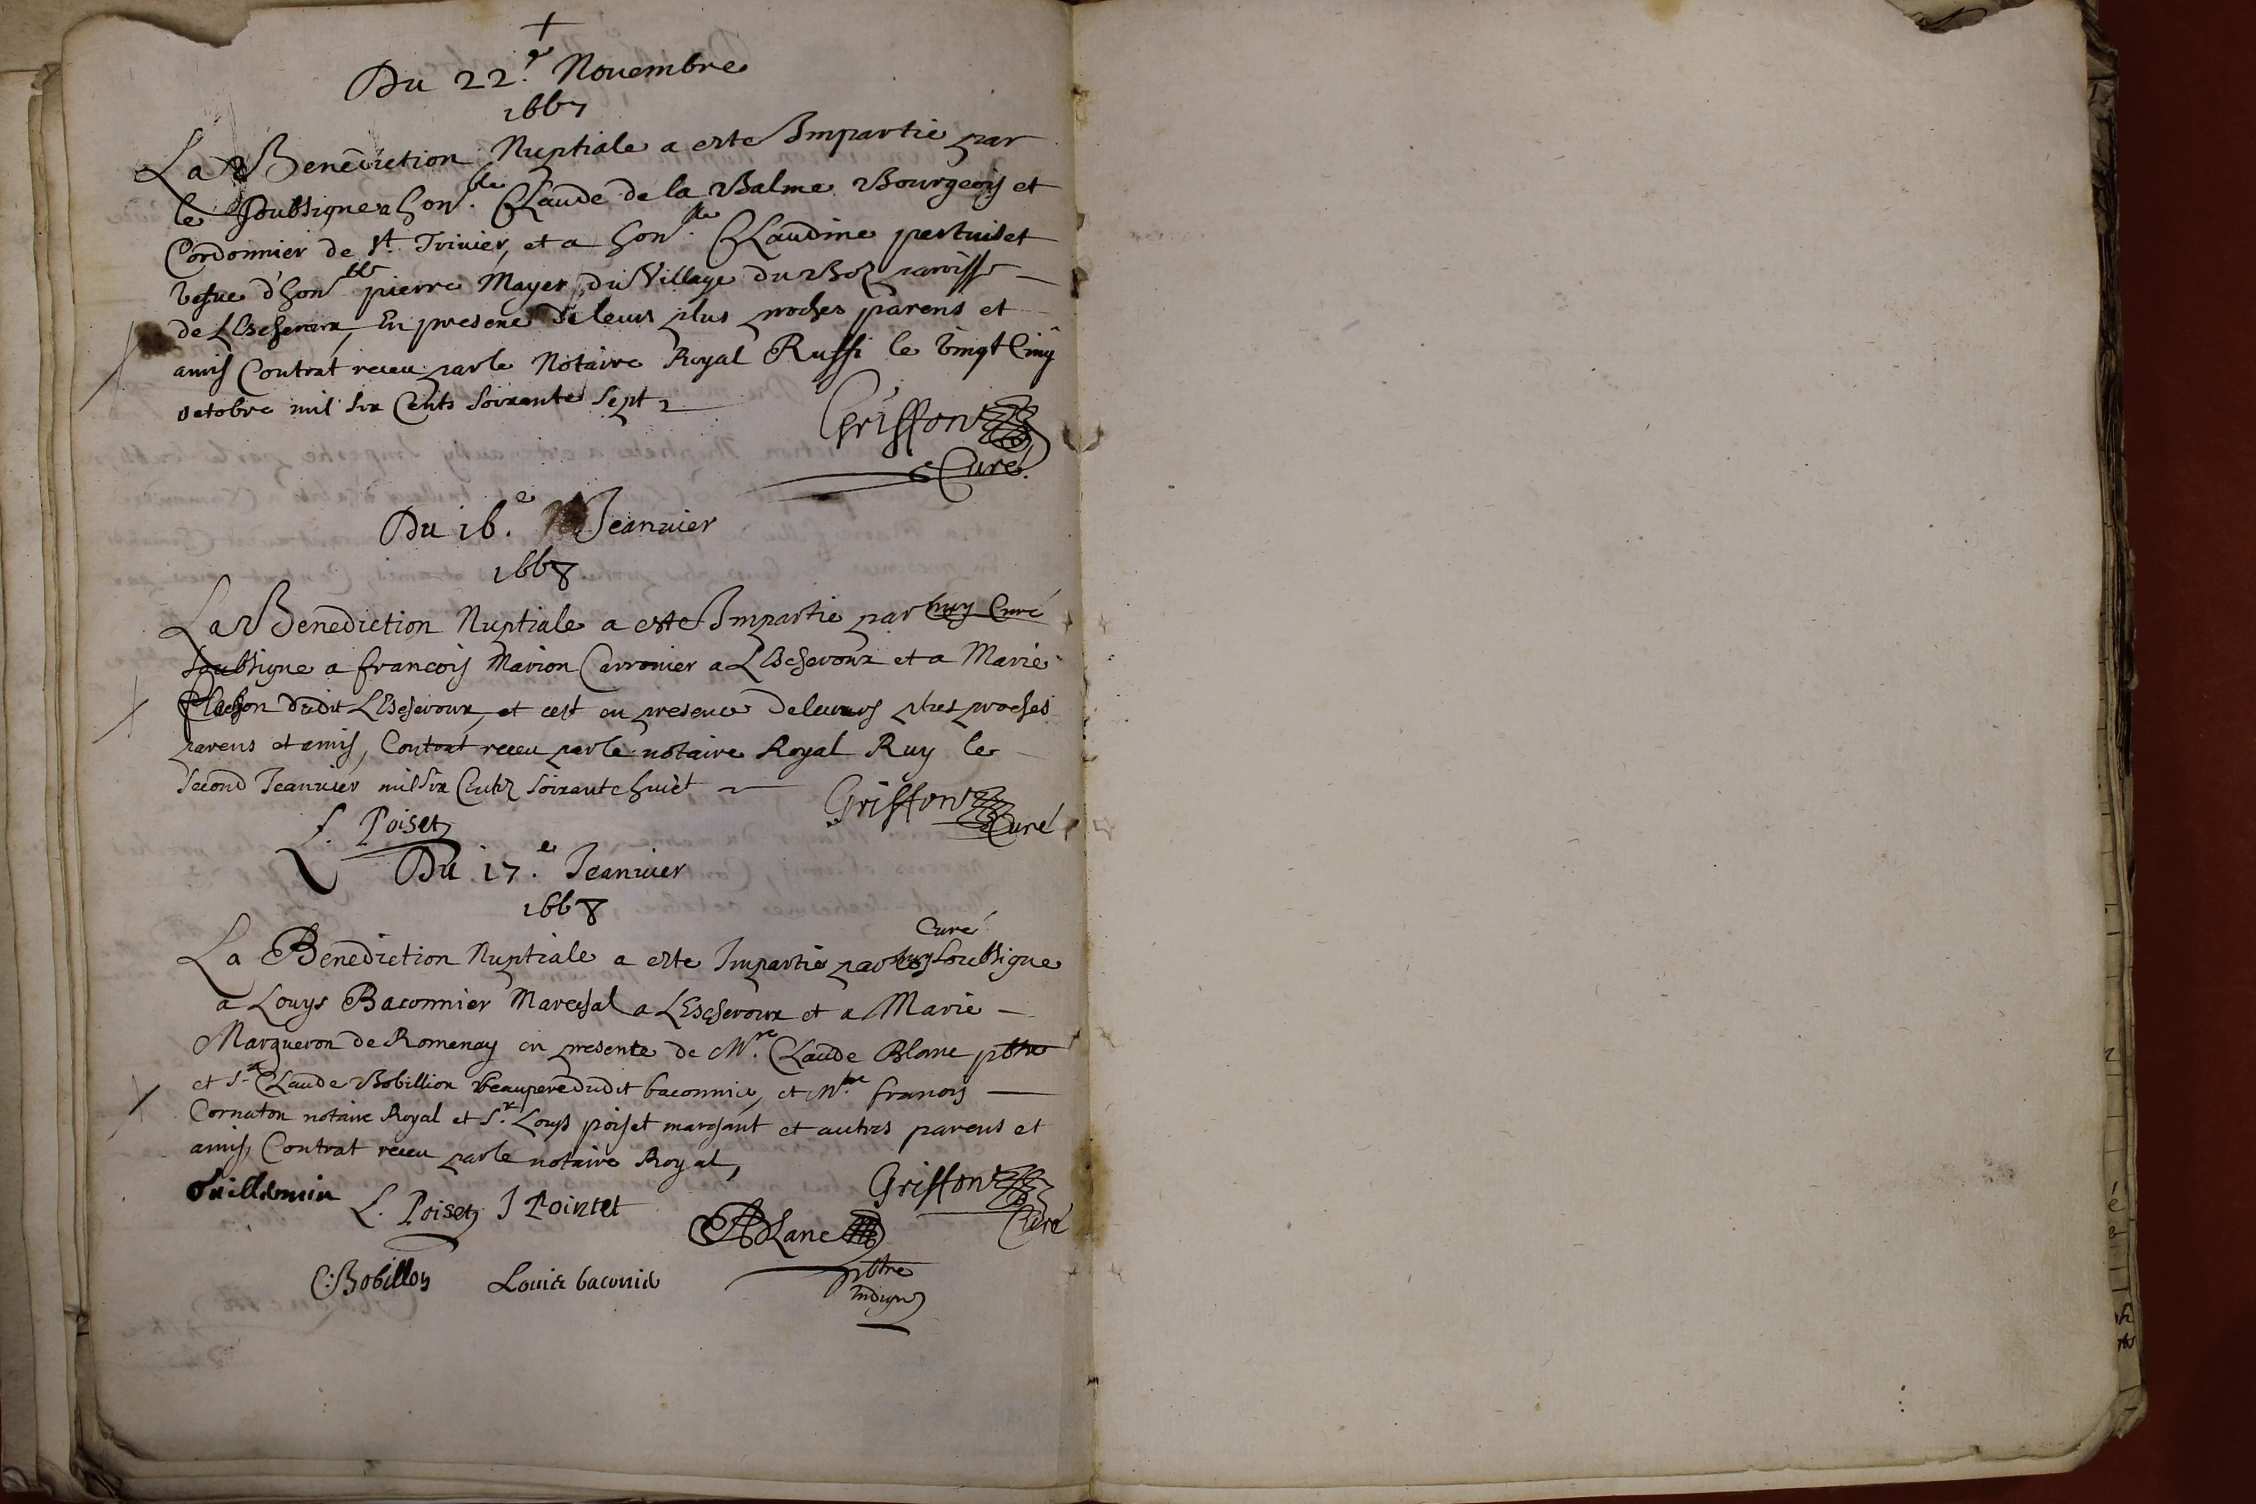 Du 22.e Nouembre
1667
La Benediction Nuptiale a este Impartie par
le Soubsigne a hon.ble Claude de la Balme Bourgeois et
Cordonnier de St. Triuier, et a hon.ble Claudine pertuiset
vefue d'hon.ble pierre Mayer du Village du Boz paroisse
de LEscheroux, En presence de leurs plus proches parens et
amis Contrat receu par le Notaire Royal Ruffi le vingt Cinq
octobre mil six Cents soixante sept
Griffon
Curé.
Du 16.e Jeanuier
1668
La Benediction Nuptiale a este Impartie par Curé
soubsigne a francois Marion Carronier a LEscheroux et a Marie
dudit LEscheroux, et cest en presence de leurs plus proches
parens et amis, Contrat receu par le notaire Royal Ruy le
second Jeanuier mil six Centz soixante huict
Griffon
Curé
L. Poiset
Du 17.e Jeanuier
1668
Curé
La Benediction Nuptiale a este Impartie par soubsigne
a Louys Baconnier Mareschal a LEscheroux et a Marie
Margueron de Romenay en presente de M.re Claude Blanc pbtre
et S.r Claude Bobillion beaupere dudit baconnier, et M.re francois
Cornaton notaire Royal et S.r Louys poiset marchant et autres parens et
amis, Contrat receu par le notaire Royal,
Guillemin
L. Poiset J Pointet
Griffon
Curé
Blanc
pbtre
Indigne
C. Bobillon Louis baconnie